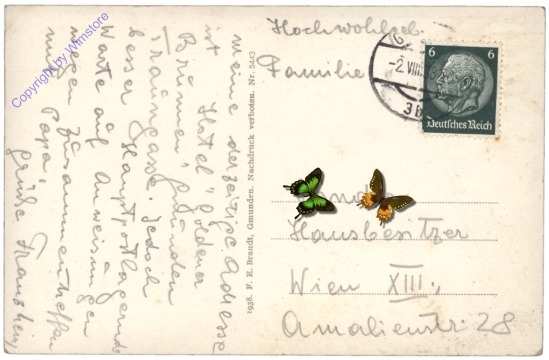 Meine derzeitige Adresse
ist Hotel "Goldener
Brunnen" Gmunden
Traungasse. Jedoch
besser Hauptpostlagernd
Warte auf Anweisungen
wegen Zusammentreffen
mit Papa.
Grüße
Copyright by Wimstore
1938. F. E. Brandt, Gmunden. Nachdruck verboten. Nr. 5443
Hochwohlgeb
Familie
Hausbesitzer
Wien XIII.,
Amalienstr. 28
6 6
Deutsches Reich
-2.VIII.
3